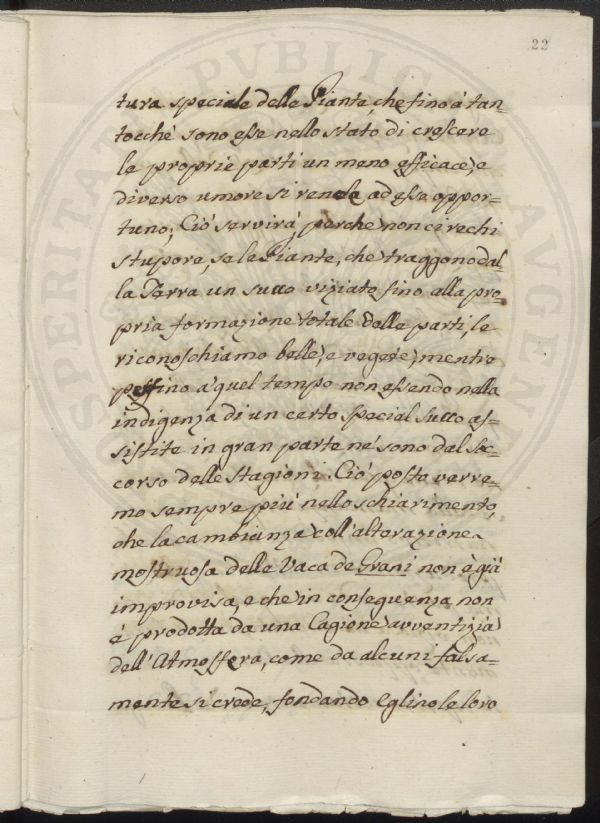 22
tura speciale delle Piante, che fino à tan=
tocché sono esse nello stato di crescere
le proprie parti un meno efficace, e
diverso umore si rende ad esse oppor=
tuno; Ciò servirà, perche non ci rechi
stupore, se le Piante, che traggono dal=
la Terra un succo viziato fino alla pro=
pria formazione totale delle parti, le
riconoschiamo belle, e vegete, mentre
peffino a quel tempo non essendo nella
indigenza di un certo special succo as=
sistite in gran parte né sono dal soc=
corso delle Stagioni. Ciò posto verre=
mo sempre più nello schiarimento,
che la cambianza coll'alterazione
mostruosa delle Vaca de Grani non è già
improvisa, e che in conseguenza non
è prodotta da una Cagione avventizia
dell'Atmosfera, come da alcuni falsa=
mente si crede, fondando Eglino le loro
PROSPERITATI PVBLICAE AVGENDAE